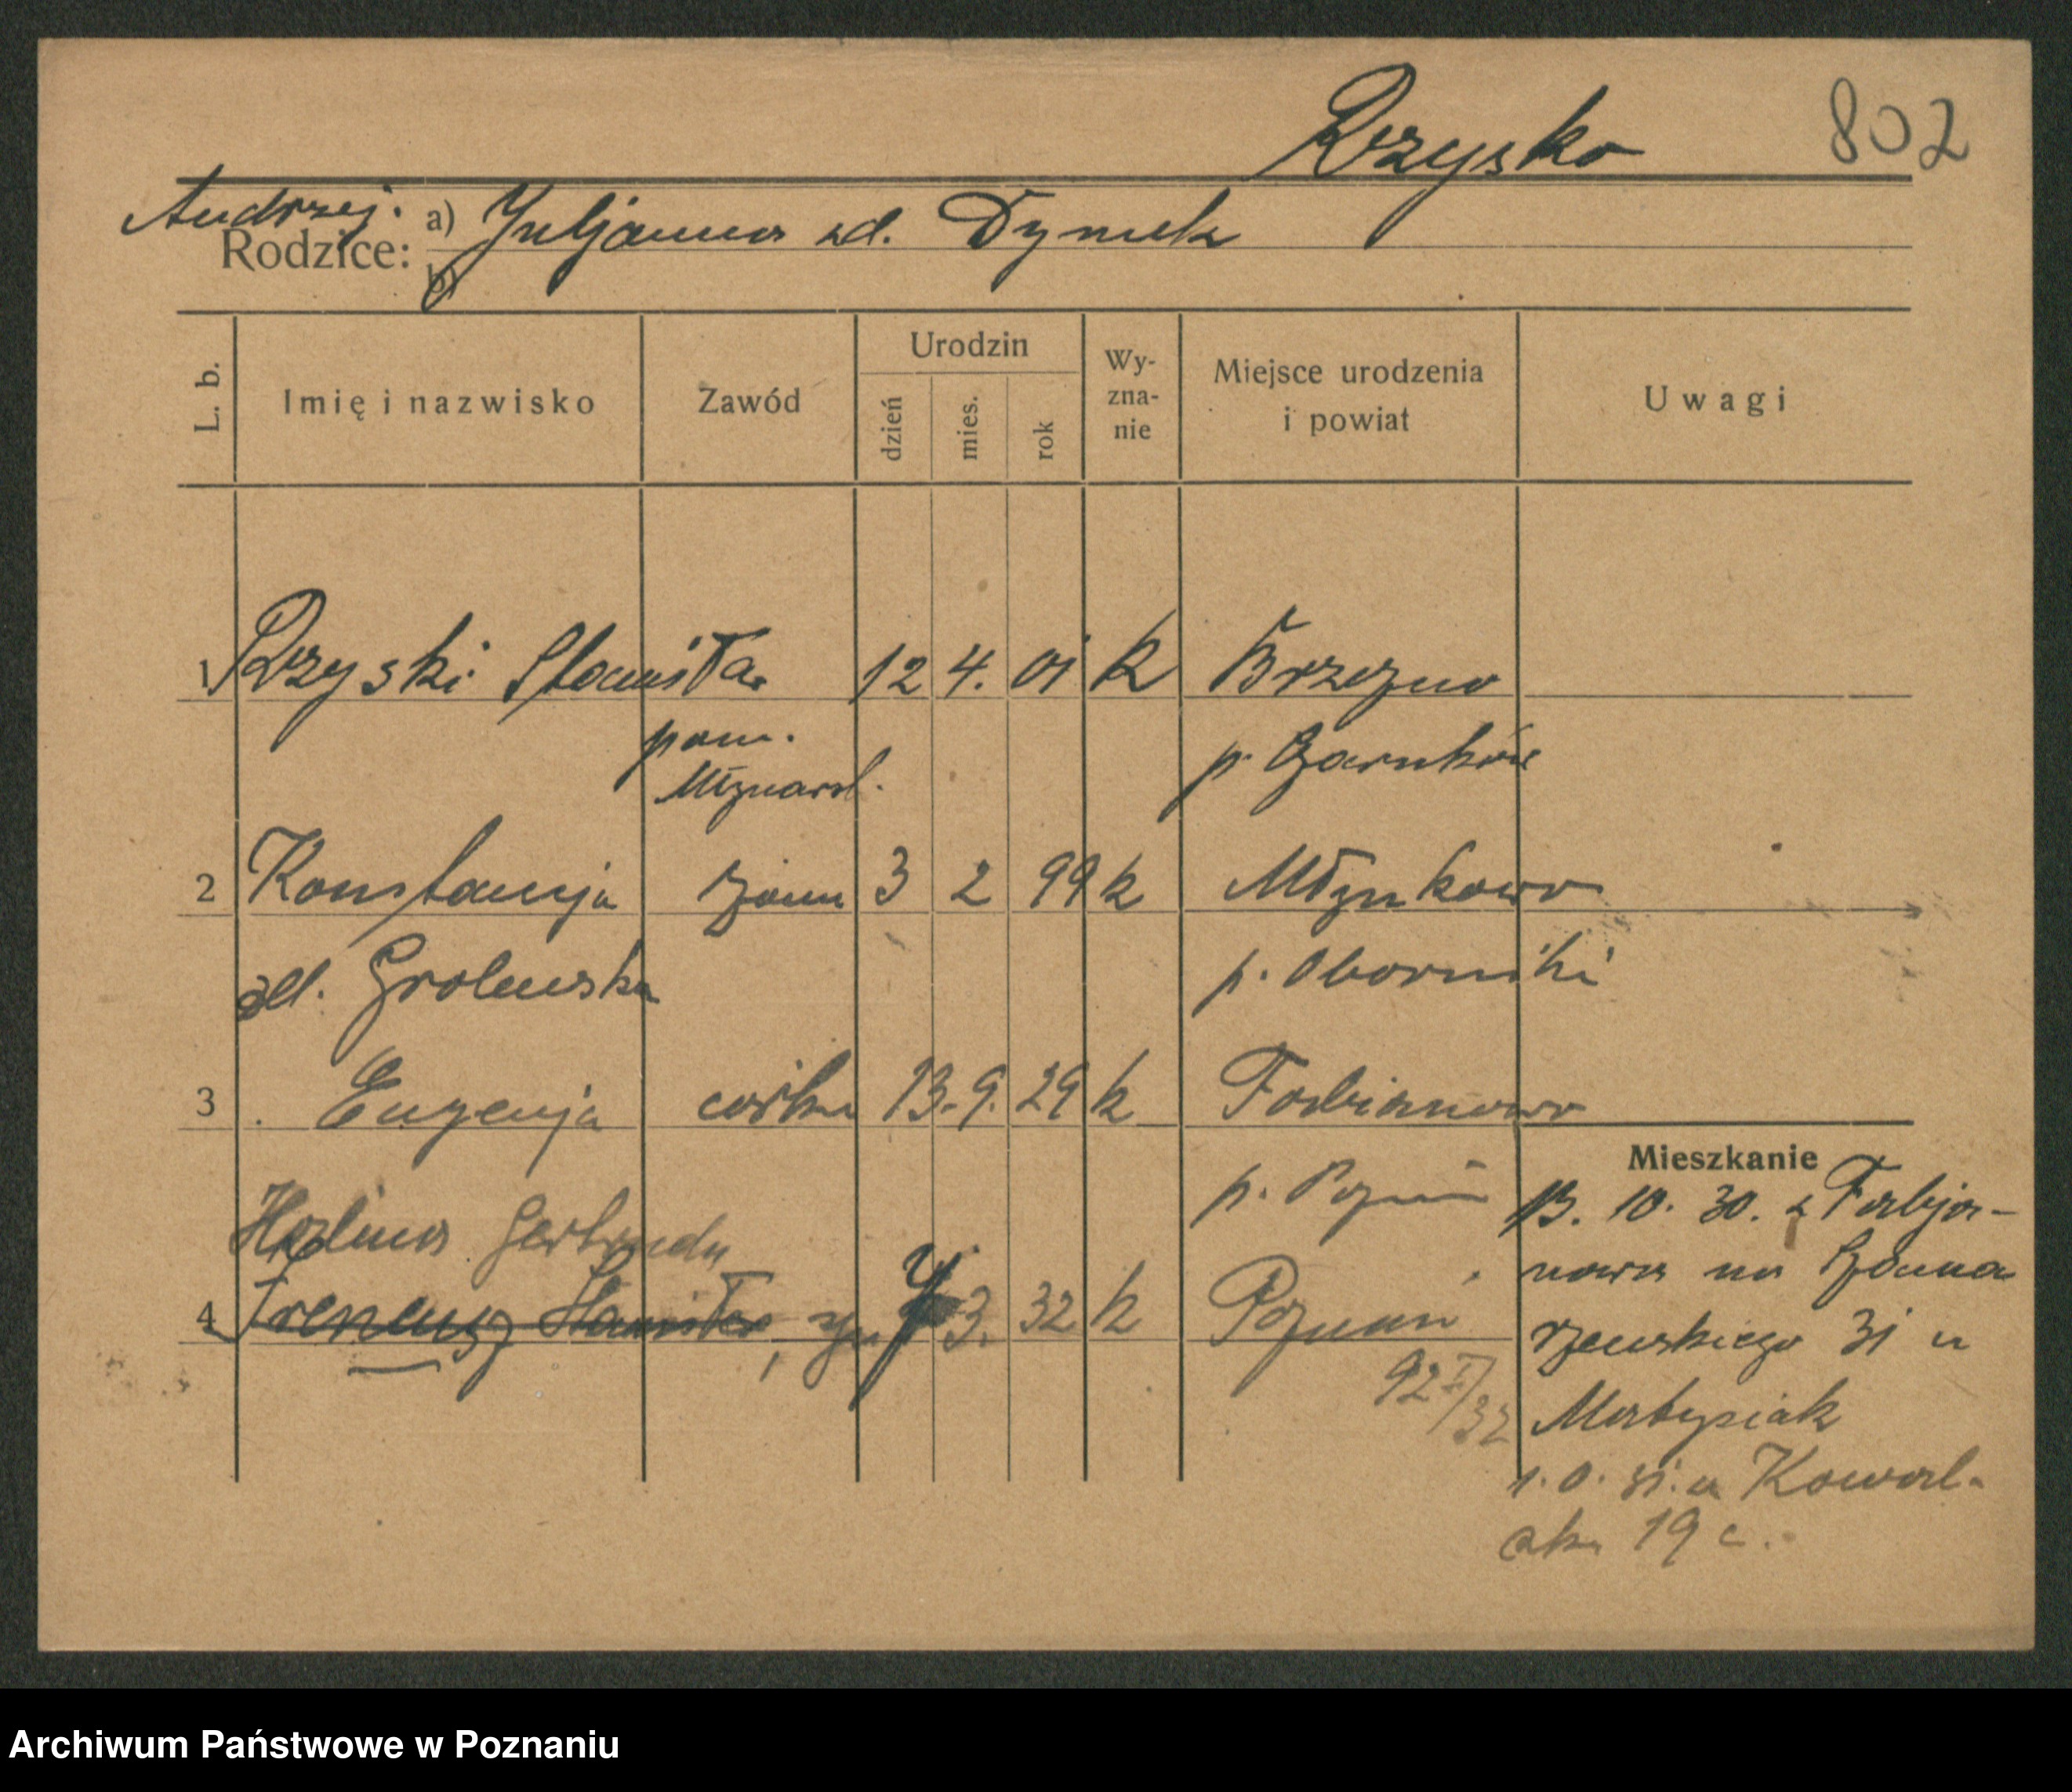 Rzysko 802
Andrzej.
Rodzice: a) Juljanna zd. Dymek
b)
L. b. Imię i nazwisko Zawód Urodzin Wy-zna-nie Miejsce urodzenia i powiat Uwagi
dzień mies. rok
1 Rzyski Stanisła 12 4. 01 k Brzezno
pom. p. Czarnków
Młynarsk.
2 Konstancja żona 3 2 99 k Młynkowo
zd. Grolewska p. Oborniki
3 Eugenja córka 13. 9. 29 k Fabianowo
p. Poznań
Mieszkanie
Halina Gertruda
4 Ireneusz Stanisław, syn 3. 32 k Poznań
92 I/32
13. 10. 30. z Fabja-
nowa na
31 u
Matysiak
u Kowal-
aka 19 c.
Archiwum Państwowe w Poznaniu